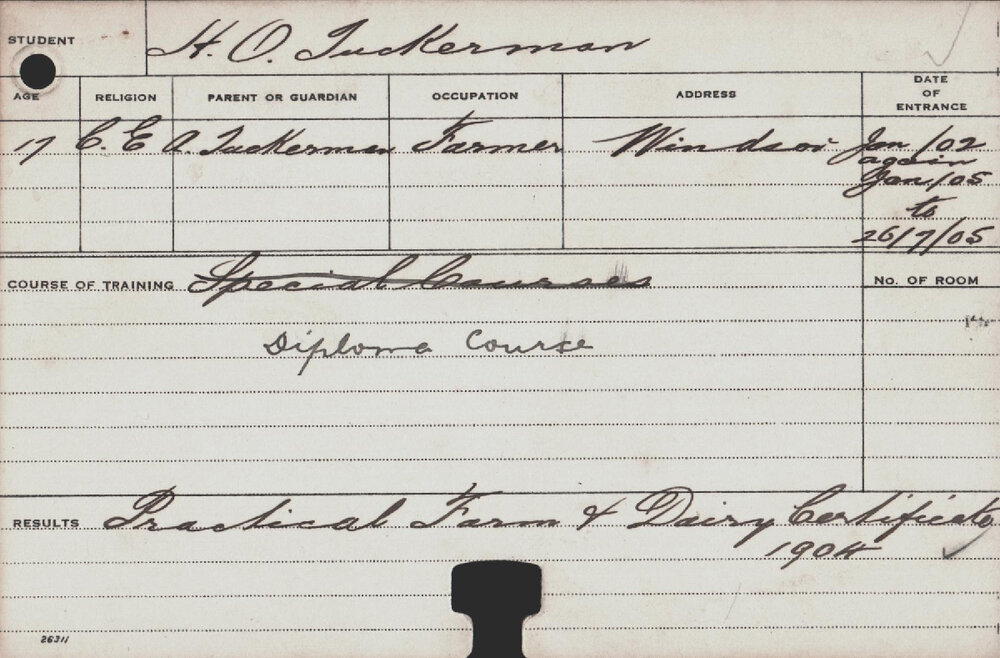 STUDENT H. O. Tuckerman
AGE RELIGION PARENT OR GUARDIAN OCCUPATION ADDRESS DATE OF ENTRANCE
17 C. E A. Tuckerman Farmer Windsor Jan/02
again
Jan/05
to
26/7/05
COURSE OF TRAINING Special Courses No. OF ROOM
Diploma Course
RESULTS Practical Farm & Dairy Certificate
1904
26311